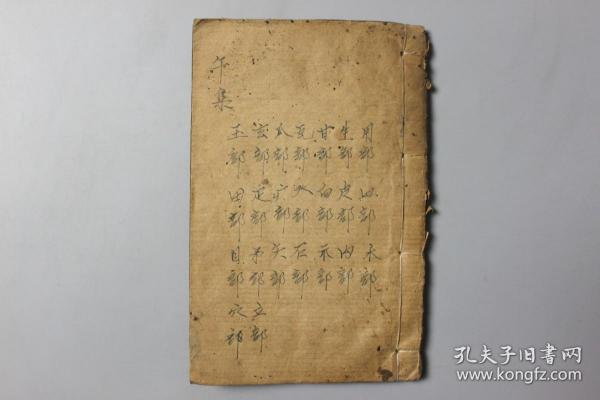 午集
玉部 玄部 瓜部 瓦部 甘部 生部 用部
田部 疋部 疒部 癶部 白部 皮部 皿部
目部 矛部 矢部 石部 示部 禸部 禾部
穴部 立部
孔夫子旧书网
www.kongfz.com